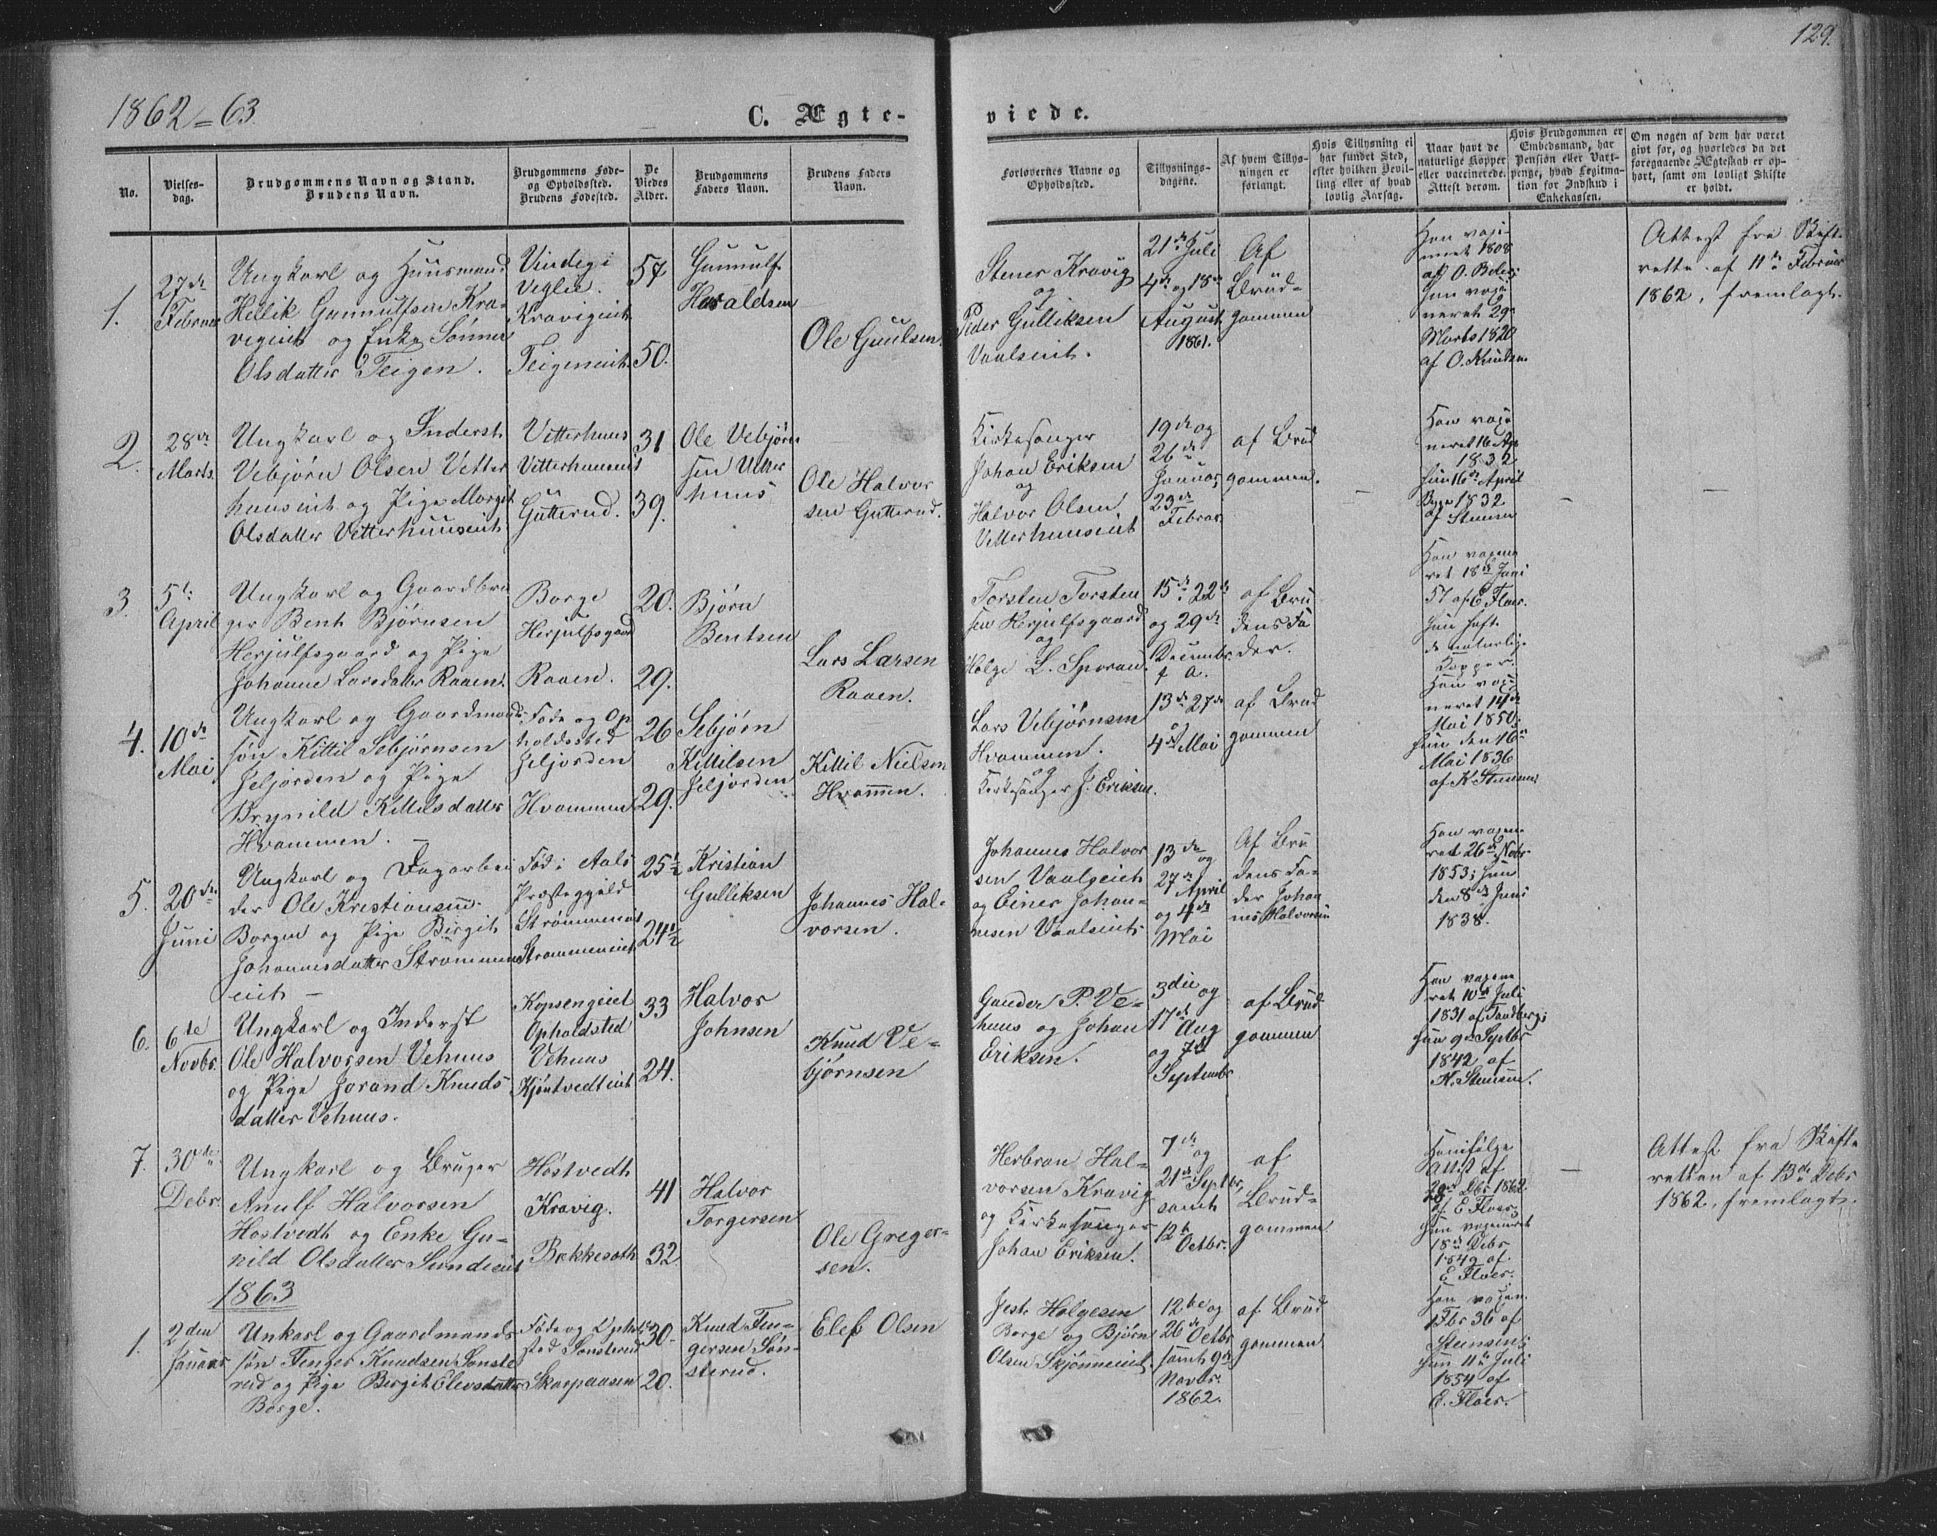 129.
1862-63.
C. Ægte-
viede.
No.
Vielses-
dag.
Brudgommens Navn og Stand.
Brudens Navn.
Brudgommens Føde-
og Opholdssted.
Brudens Fødested.
De
Viedes
Alder.
Brudgommens
Faders Navn.
Brudens Faders
Navn.
Forlovernes Navne og
Opholdssted.
Tillysnings-
dagene.
Af hvem Tillys-
ningen er
forlangt.
Hvis Tillysning ei
har fundet Sted,
efter hvilken Bevil-
ling eller af hvad
lovlig Aarsag.
Naar havt de
naturlige Kopper
eller vaccinerede.
Attest derom.
Hvis Brudgommen er
Embedsmand, har
Pension eller Vart-
penge, hvad Legitima-
tion for Indskud i
Enkekassen.
Om nogen af dem har været
givt før, og hvorledes da det
foregaaende Ægteskab er op-
hørt, samt om lovligt Skifte
er holdt.
1.
27de
Februar
Ungkarl og Huusmand
Hellik Gunnulfsen Kra-
vigeiet og Enke Sønner
Olsdatter Teigen.
Vindeg i
Veglie.
Kravigeiet
Teigeneiet
57
50.
Gunnulf
Haraldsen
Ole Guulsen
Stener Kravig
og
Peder Gulliksen
Vaalseiet.
21de Juli
4de og 18de
August
1861.
Af
Brud-
gommen
Han vaci-
neret 1808
af O. Bekes
hun vaci
neret 29de
Marts 1820
af O. Knudsen
Attest fra Skift-
rette af 11te Februar
1862, fremlagt.
2.
28de
Marts.
Ungkarl og Inderst
Vebjørn Olsen Vetter
huuseiet og Pige Margit
Olsdatter Vetterhuuseiet
Vetterhuus
Vetterhuuseiet
Gutterud.
31
39.
Ole Vebjørn
sen Vetter
huus
Ole Halvor
sen Gutterud.
Kirkesanger
Johan Eriksen
og
Halvor Olsen
Vetterhuuseiet
19de og
26de
Januar,
23de
Februar
af Brud
gommen.
Han vaci
neret 16 Apr
1832
hun 16de April
1832
af Stensen
3.
5te
April
Ungkarl og Gaardbru
ger Bent Bjørnsen
Herjulfsgaard og Pige
Johanne Larsdatter Raaen.
Borge
Herjulfsgaard
Raaen.
20.
29.
Bjørn
Bentsen
Lars Larsen
Raaen.
Torsten Torsten
sen Herjulfsgaard
og
Helge L. Sporan.
15de 22de
og 29de
Decembr.
f. A.
af Bru
dens Fa
der.
Han vaccine
ret 18de Juni
57 af E. Floer.
hun haft
de naturlige
Kopper.
4.
10de
Mai
Ungkarl og Gaardmands
søn Kittil Sebjørnsen
Jeljorden og Pige
Brynild Kittilsdatter
Hvammen.
Føde og Op
holdssted
Jeljorden
Hvammen
26
29.
Sebjørn
Kittilsen
Jeljorden
Kittil Nielsen
Hvammen.
Lars Vebjørnsen
Hvammen.
og
Kirkesanger J. Eriksen.
13de 27de
og
4de Mai
af Brud
gommen
Han vaci
neret 14de
Mai 1850;
hun den 16de
Mai 1836
af K. Stensen
5.
20de
Juni
Ungkarl og Dagarbei
der Ole Kristiansen
Borgen og Pige Birgit
Johannesdatter Strømmen
eiet
Fød i Aals
Præstegjeld
Strømmeneiet
Strømmeneiet
25½
24½
Kristian
Gulliksen
Johannes Hal-
vorsen.
Johannes Halvor
sen Vaalseiet
og Einer Johan-
nesen Vaalseiet
13de og
27de April
og 4de
Mai
Af Bru
dens Fa-
der Johan
nes Halvorsen
Han vaccine
ret 26de Novbr
1853; hun
den 8de Juni
1838.
6.
6te
Novbr.
Ungkarl og Inderst
Ole Halvorsen Vehuus
og Pige Jorand Knuds
datter Vehuus.
Kopsengeiet
Opholdsted
Vehuus
Kjøntvedteiet
33
24.
Halvor
Johnsen
Knud Ve-
bjørnsen
Gunder P. Ve-
huus og Johan
Eriksen.
3die og
17de Aug
og 7de
Septembr
af Brud
gommen
Han vaccine
ret 10de Juli
1831 af Tandberg;
hun 9de Septbr
1842 af
K. Stensen.
7.
30de
Debr.
Ungkarl og Bruger
Anulf Halvorsen
Hostvedt og Enke Gu-
nild Olsdatter Sundeeiet
Hostvedt
Kravig.
Bækkeseth
41
32
Halvor
Torgersen
Ole Greger-
sen.
Herbran Hal-
vorsen Kravig
og Kirkesanger
Johan Eriksen.
7de og
21de Septbr,
samt
12te
Octbr.
af
Brud-
gommen
Han ifølge
Attest af
29de Dbr 1862
af E. Floer,
hun vaccineret
18de Debr
1849 af
E. Floer.
Attest fra Skifte
retten af 13de Debr
1862, fremlagt.
1863
1.
2den
Januar
Unkarl og Gaardmands
søn Tenger Knudsen Sønste
rud og Pige Bergit Elevsdatter
Borge.
Føde og Opholds
sted Sønsterud
Skarpaasen
30.
20.
Knud Ten-
gersen Søn-
sterud.
Elef Olsen
Jest. Helgesen
Borge og Bjørn
Olsen Skjønneiet.
12te og
26de Octbr
samt 9de
Novbr.
1862.
af Brud
gommen
Han vaccin.
Fbr 36 af
Stensen;
hun 11te Juli
1854 af
E. Floer.